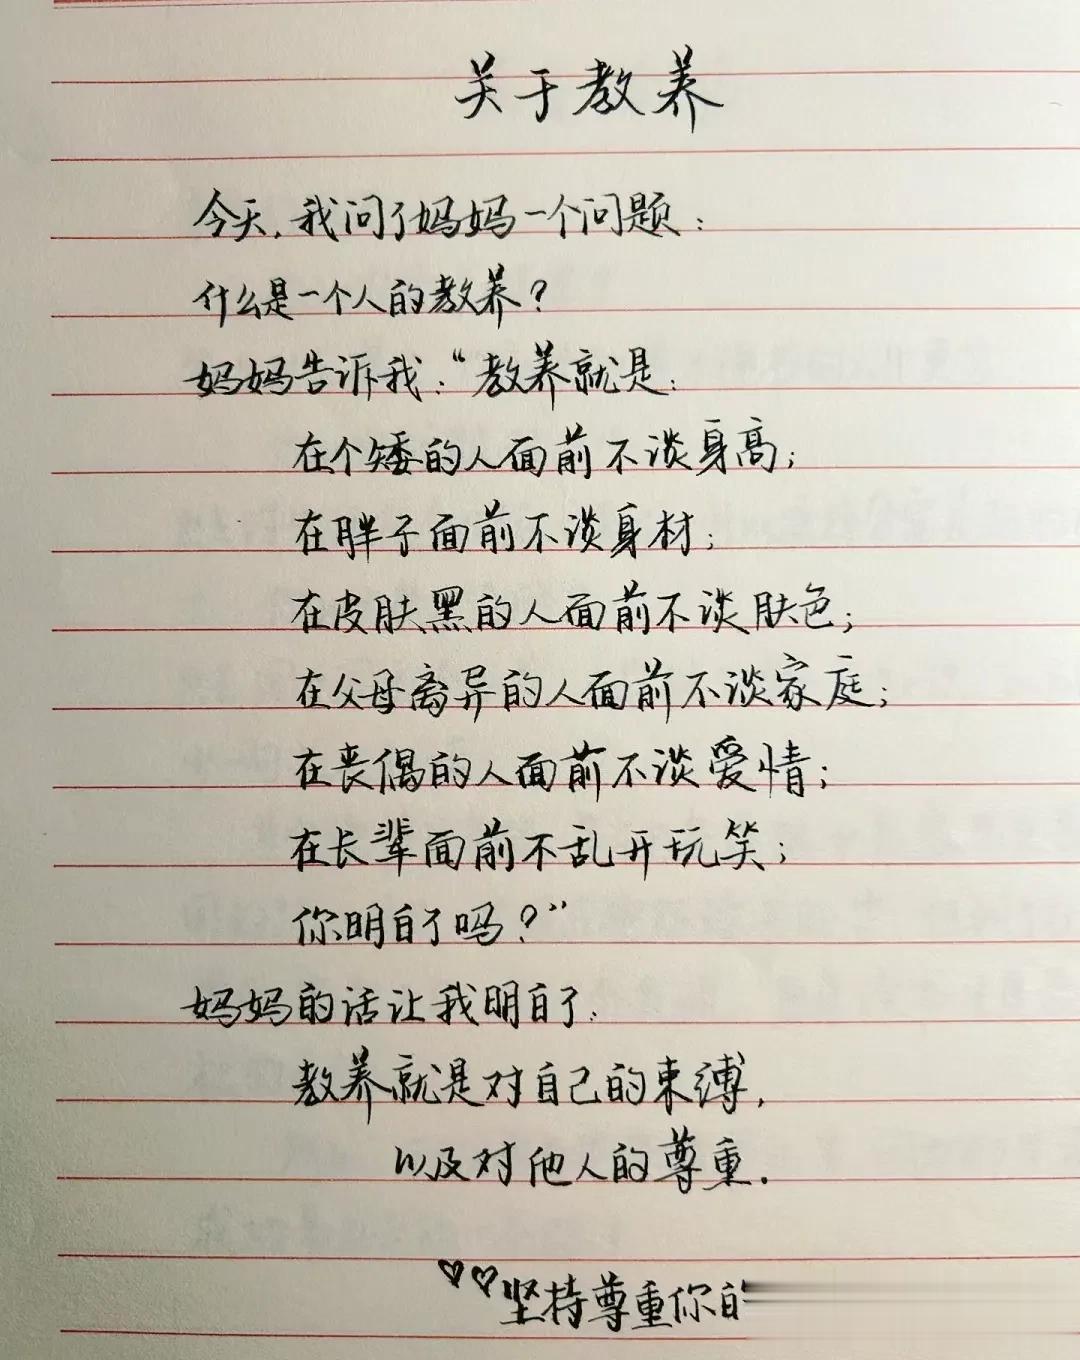 关于教养
今天,我问了妈妈一个问题:
什么是一个人的教养?
妈妈告诉我:“教养就是:
在个矮的人面前不谈身高;
在胖子面前不谈身材;
在皮肤黑的人面前不谈肤色;
在父母离异的人面前不谈家庭;
在丧偶的人面前不谈爱情;
在长辈面前不乱开玩笑;
你明白了吗?”
妈妈的话让我明白了:
教养就是对自己的束缚,
以及对他人的尊重.
坚持尊重你